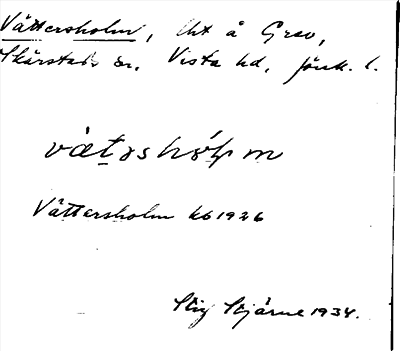 Vättersholm, lht å Grev,
Skärstads sn, Vista hd, Jönk. l.
vætəshȯḷm
Vättersholm kb 1926
Stig Stjärne 1934.